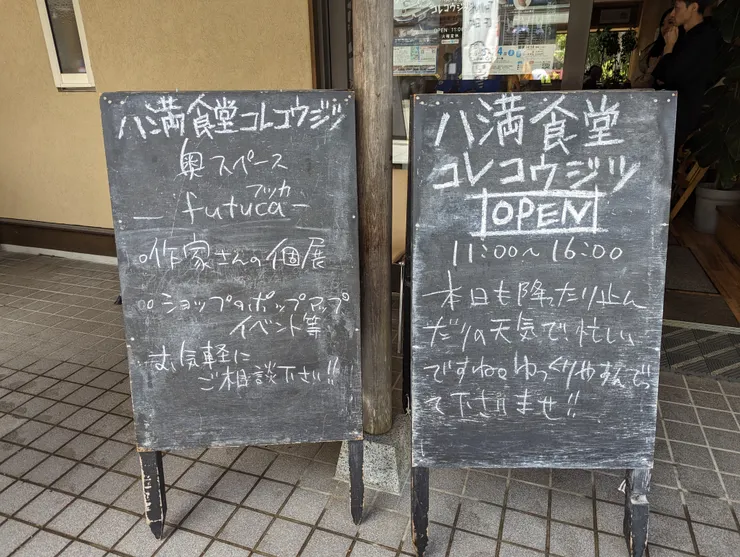 八満食堂コレコウジツ
奥スペース
フッカ
― futuca ―
○作家さんの個展
○ショップのポップアップ
イベント等
お気軽に
ご相談下さい!!
八満食堂
コレコウジツ
OPEN
11:00〜16:00
本日も降ったり止ん
だりの天気で、忙しい
ですね。ゆっくりやすんでっ
て下さいませ!!
コレコウジツ
OPEN 11:00